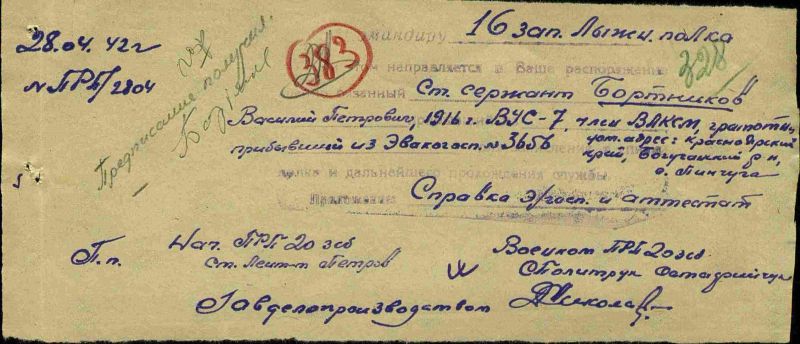 28.04.42г
№ПРБ/2804
Предписание получил.
383
Командиру 16 зап. Лыжн. полка
328
направляется в Ваше распоряжение
Ст. сержант Бортников
Василий Петрович, 1916 г. ВУС-7, член ВЛКСМ, грамотн,
прибывший из Эвакогосп. №3656
дом. адрес: Красноярский
край, Богучанский р-н,
д. Пинчуга
полка и дальнейшего прохождения службы.
Приложение: Справка э/госп. и аттестат
П.п. Нач. ПРБ 20 зсб
Ст. Лейт-т Петров
Военком ПРБ 20 зсб
Ст Политрук
Завделопроизводством